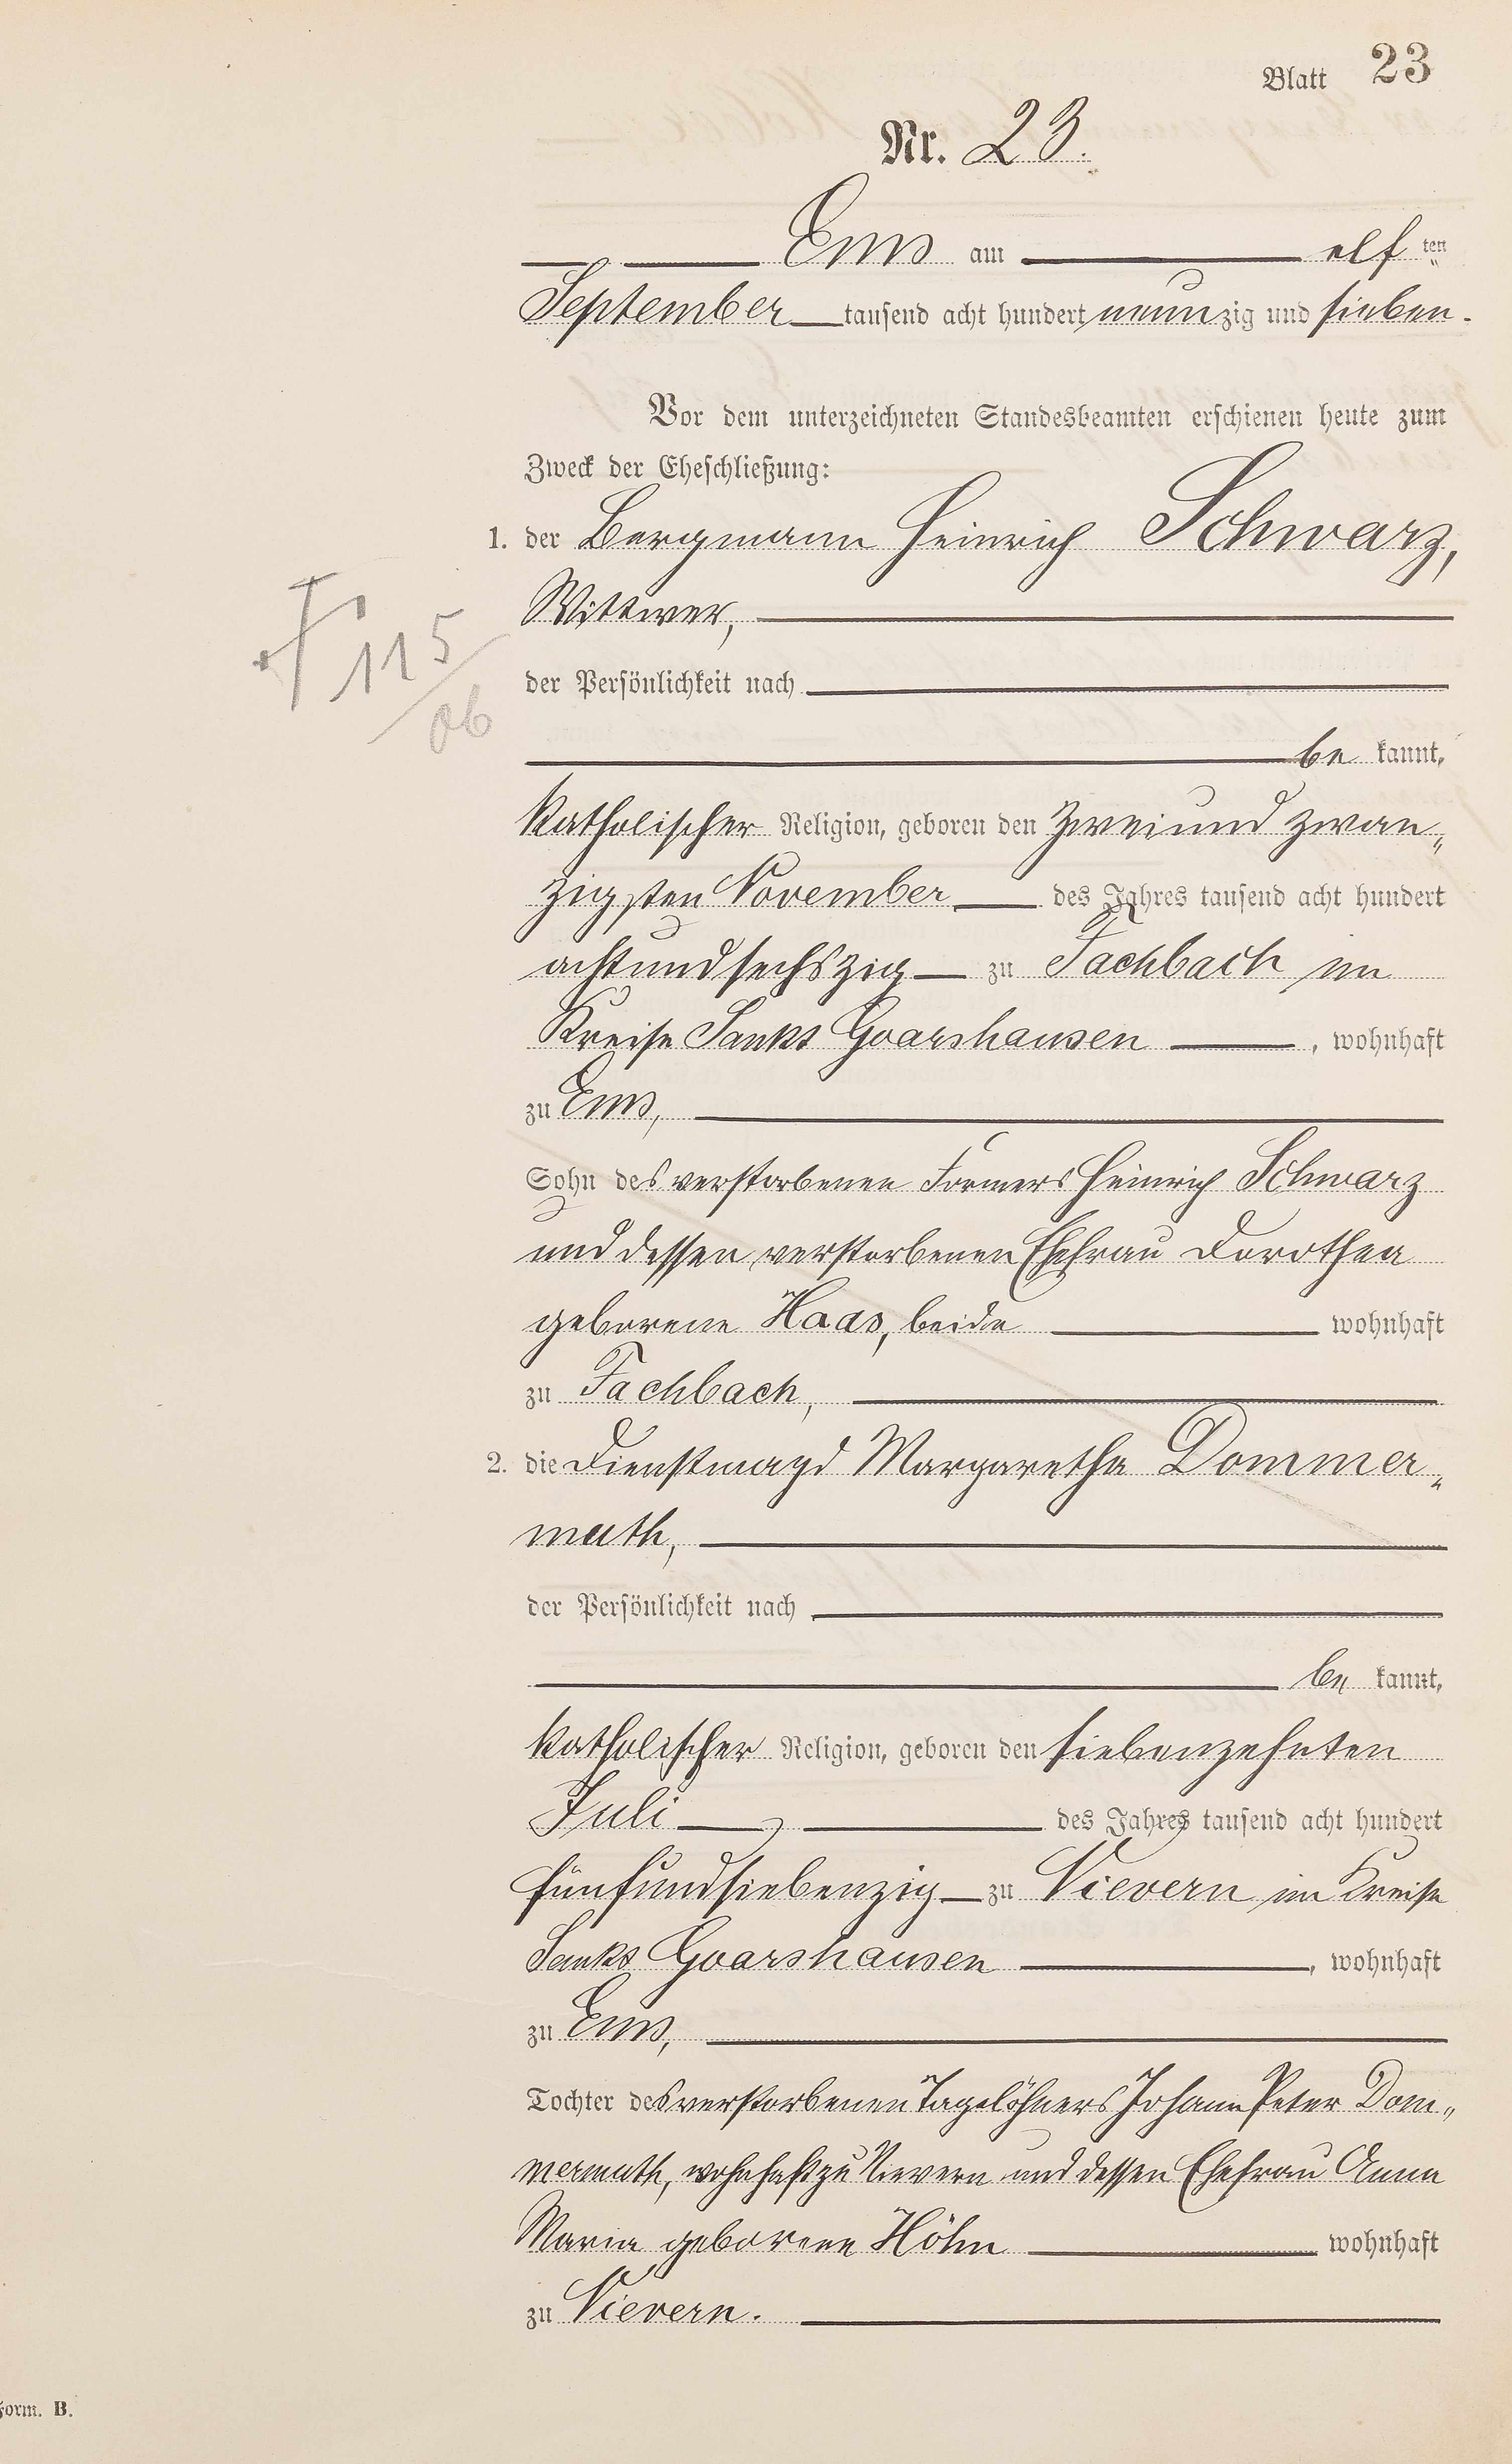 Blatt 23
Nr. 23.
Ems am elf ten
September tausend acht hundert neunzig und sieben.
Vor dem unterzeichneten Standesbeamten erschienen heute zum
Zweck der Eheschließung:
1. der Bergmann Heinrich Schwarz,
Wittwer,
der Persönlichkeit nach
be kannt,
katholischer Religion, geboren den zweiund zwan„
zigsten November des Jahres tausend acht hundert
achtundsechszig zu Fachbach im
Kreise Sankt Goarshausen, wohnhaft
zu Ems,
Sohn des verstorbenen Formers Heinrich Schwarz
und dessen verstorbenen Ehefrau Dorothea
geborene Haas, beide wohnhaft
zu Fachbach,
2. die Dienstmagd Margaretha Dommer„
muth,
der Persönlichkeit nach
be kannt,
katholischer Religion, geboren den siebenzehnten
Juli des Jahres tausend acht hundert
fünfundsiebenzig zu Nievern im Kreise
Sankt Goarshausen, wohnhaft
zu Ems,
Tochter des verstorbenen Tagelöhners Johann Peter Dom„
mermuth, wohnhaft zu Nievern und dessen Ehefrau Anna
Maria geborene Höhn wohnhaft
zu Nievern.
Form. B.